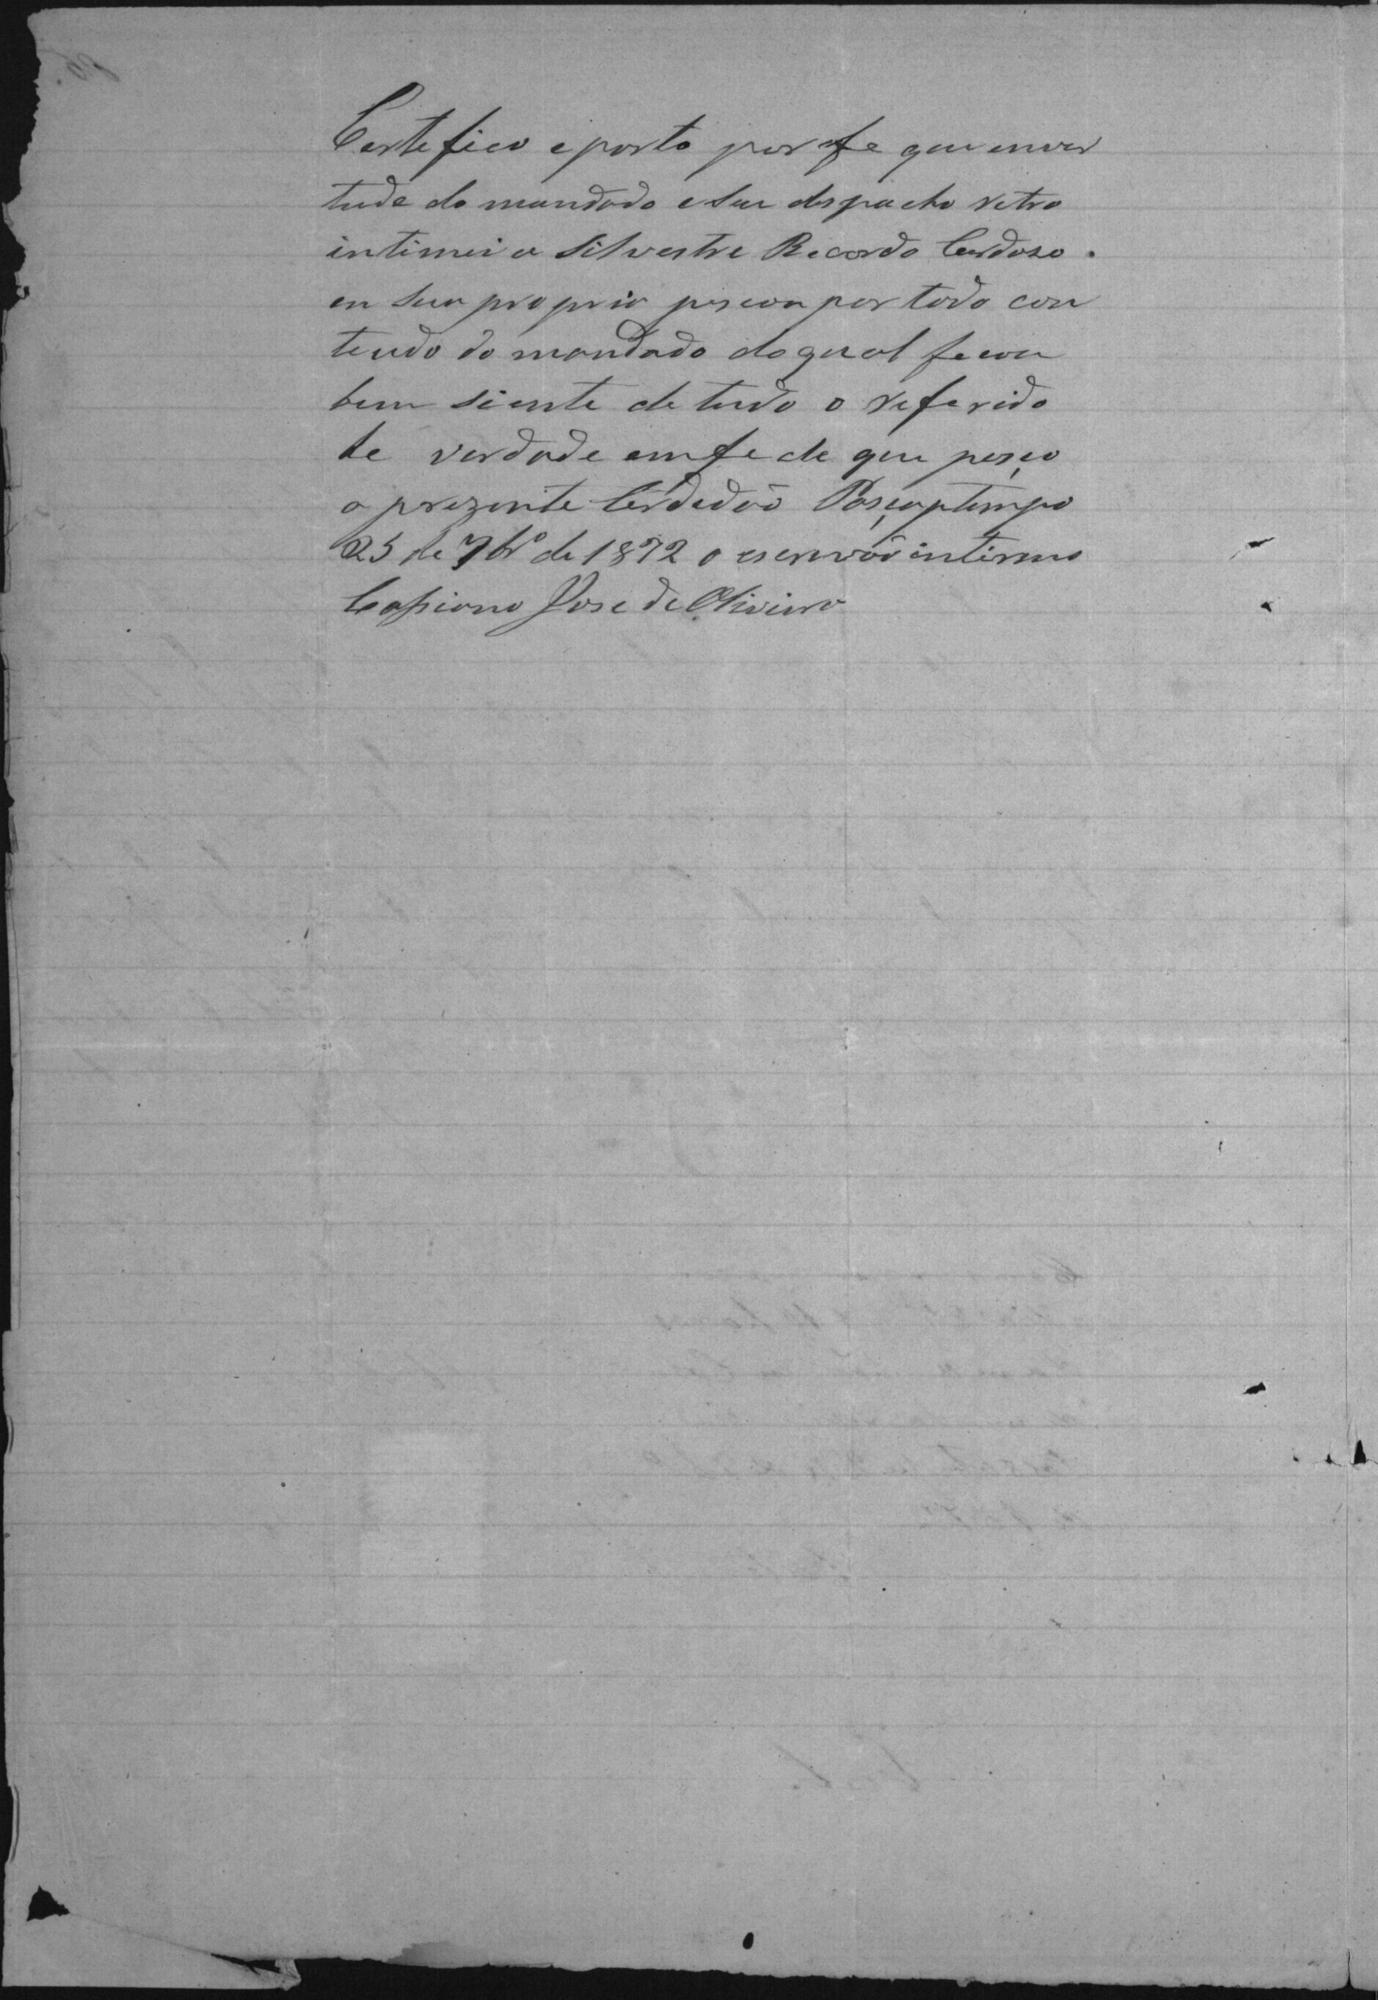 Certefico e porto por fe que em ver
tude do mandado e seu despacho retro
intimei a Silvestre Recardo Cardoso.
en sua propria pesoa por todo con
teudo do mandado do qual fecou
bem siente de tudo o referido
he verdade em fe de que paço
a prezente Cerdedão Paçaptempo
25 de 7br.º de 1872 o escrivão interino
Cassiano Jose de Oliveira